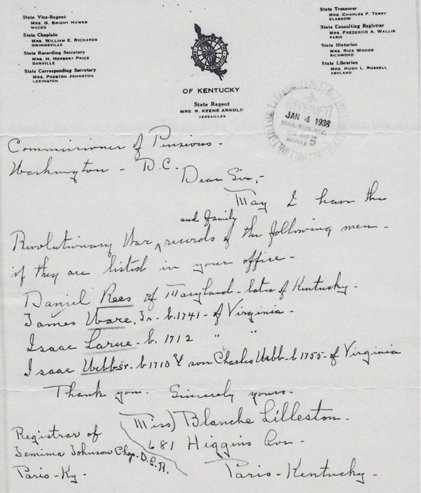 State Vice-Regent
Mrs. G. Bright Hawes
Maceo
State Chaplain
Mrs. William E. Richards
Owingsville
State Recording Secretary
Mrs. H. Herbert Price
Danville
State Corresponding Secretary
Mrs. Preston Johnston
Lexington
State Treasurer
Mrs. Charles F. Terry
Glasgow
State Consulting Registrar
Mrs. Frederick A. Wallis
Paris
State Historian
Mrs. Rice Woods
Richmond
State Librarian
Mrs. Hugh L. Russell
Ashland
OF KENTUCKY
State Regent
Mrs. R. Keene Arnold
Versailles
RECEIVED
JAN 4 1938
Commissioner of Pensions -
Washington - D.C.
Dear Sir, -
May I have the
and family
Revolutionary War, records of the following men -
if they are listed in your office -
Daniel Rees of Maryland - later of Kentucky -
James Ware, Jr. b. 1741 - of Virginia -
Isaac Larue - b. 1712 " "
Isaac Webb Sr. b 1710 & son Charles Webb - b 1755 - of Virginia
Thank you. Sincerely yours -
(Miss) Blanche Lilleston -
681 Higgins Ave. -
Paris - Kentucky -
Registrar of
Jemima Johnson Chap. D.A.R.
Paris - Ky.